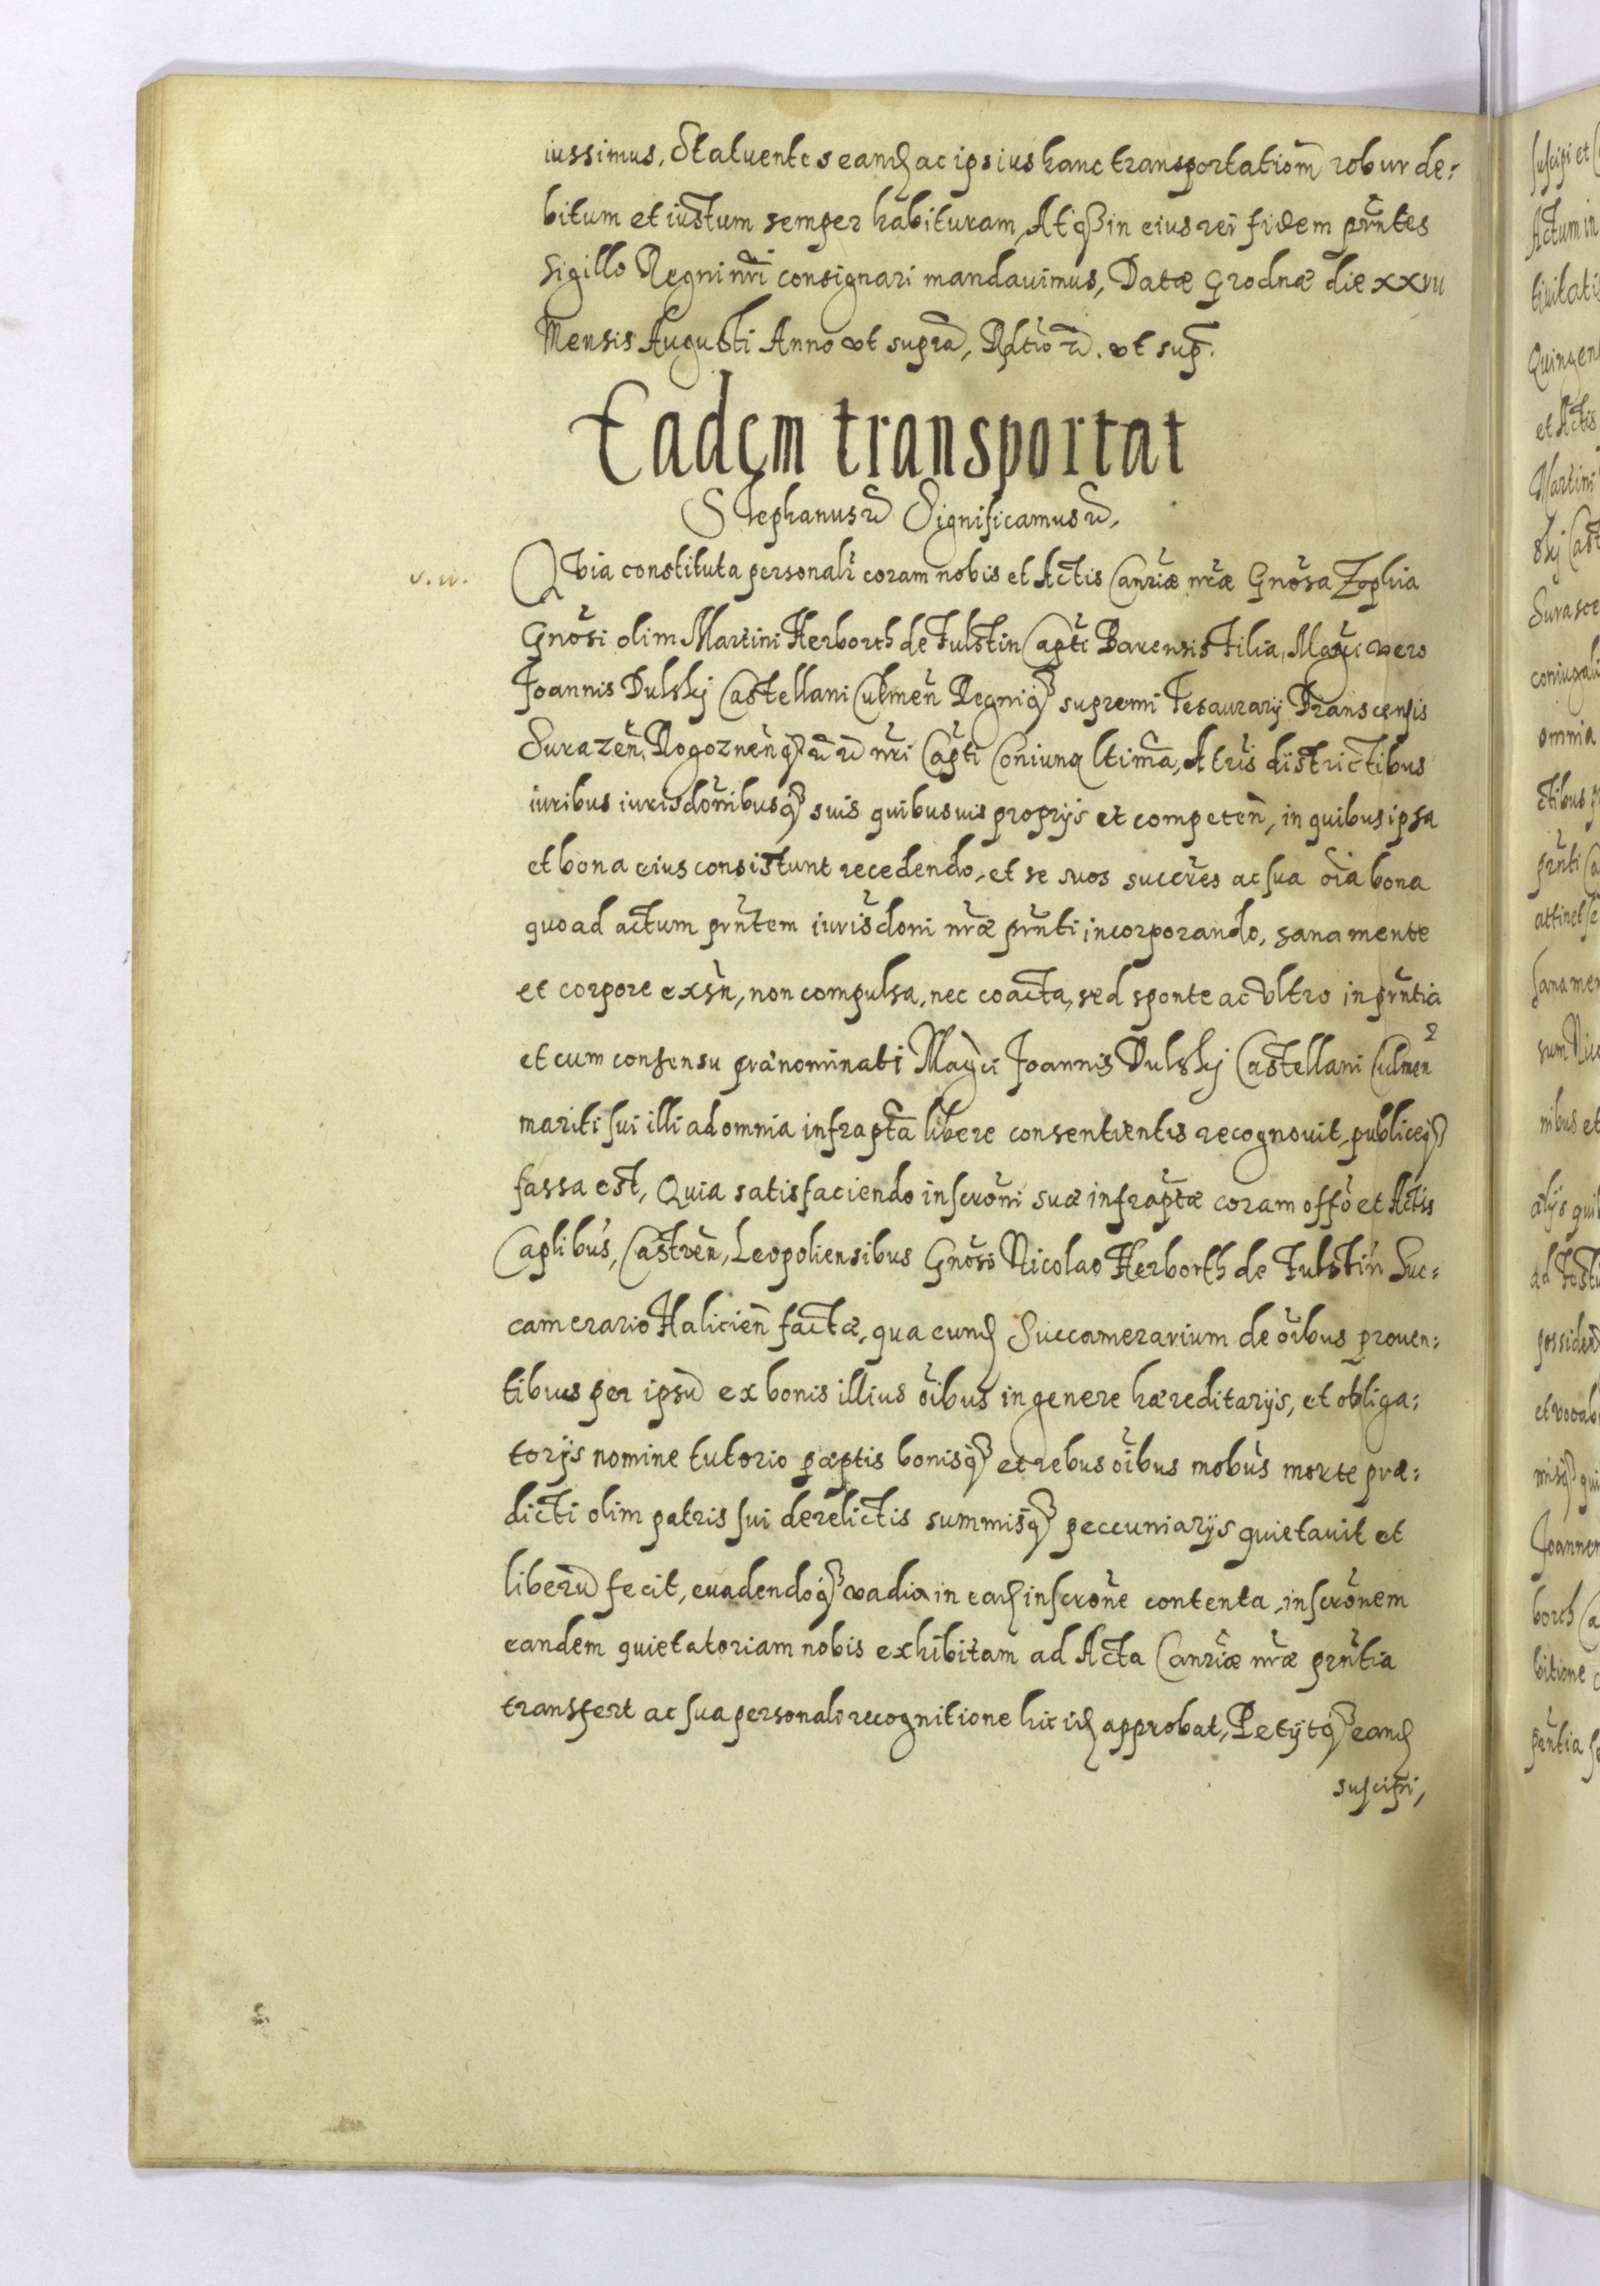 iussimus, Statuentes eandẽ ac ipsius hanc transportatiom̃ robur de:
bitum et iustum semper habituram, Atq₃ in eius rei fidem prñtes
sigillo Regni nr̃i consignari mandauimus, Datæ Grodnæ die xxvii
Mensis Augusti Anno vt supra, Rltio rc̃. vt sup̃.
Eadem transportat
Stephanus rc̃ Significamus rc̃,
v. ii. Qvia constituta personalr̃ coram nobis et Actis Canr̃iæ nr̃æ Gnõsa Zophia
Gnõsi olim Martini Herborth de Fulstin Capt̃i Barensis Filia, Mag̃ci vero
Joannis Dulskij Castellani Culmeñ Regniq₃ supremi Tesaurarij Branscensis
Surazeñ, Rogoznenq₃ rc̃ rc̃ nr̃i Capt̃i Coniunx ltima, A tr̃is districtibus
iuribus iurisdoñibusq₃ suis quibusuis proprijs et competeñ, in quibus ipsa
et bona eius consistunt recedendo, et se suos succr̃es ac sua oĩa bona
quoad actum prñtem iurisdoni nr̃æ prñti incorporando, sana mente
et corpore exs̃ñ, non compulsa, nec coacta, sed sponte ac vltro in prñtia
et cum consensu prænominati Mag̃ci Joannis Dulskij Castellani Culmeñ
mariti sui illi ad omnia infrapt̃a libere consentientis recognouit, publiceq₃
fassa est, Quia satisfaciendo inscrõni suæ infrapt̃æ coram offõ et Actis
Caplibus, Castreñ, Leopoliensibus Gnõso Nicolao Herborth de Fulstin Suc:
camerario Halicieñ factæ, qua eundẽ Succamerarium de oĩbus prouen:
tibus per ipsũ ex bonis illius oĩbus in genere hæreditarijs, et obliga:
torijs nomine tutorio pæptis bonisq₃ et rebus oĩbus mobus morte præ:
dicti olim patris sui derelictis summisq₃ peccuniarijs quietauit et
liberũ fecit, euadendoq₃ vadia in eadẽ inscrõne contenta, inscrõnem
eandem quietatoriam nobis exhibitam ad Acta Canr̃iæ nr̃æ prñtia
transfert ac sua personali recognitione hic idẽ approbat, Petijtq₃ eandẽ
suscipi,